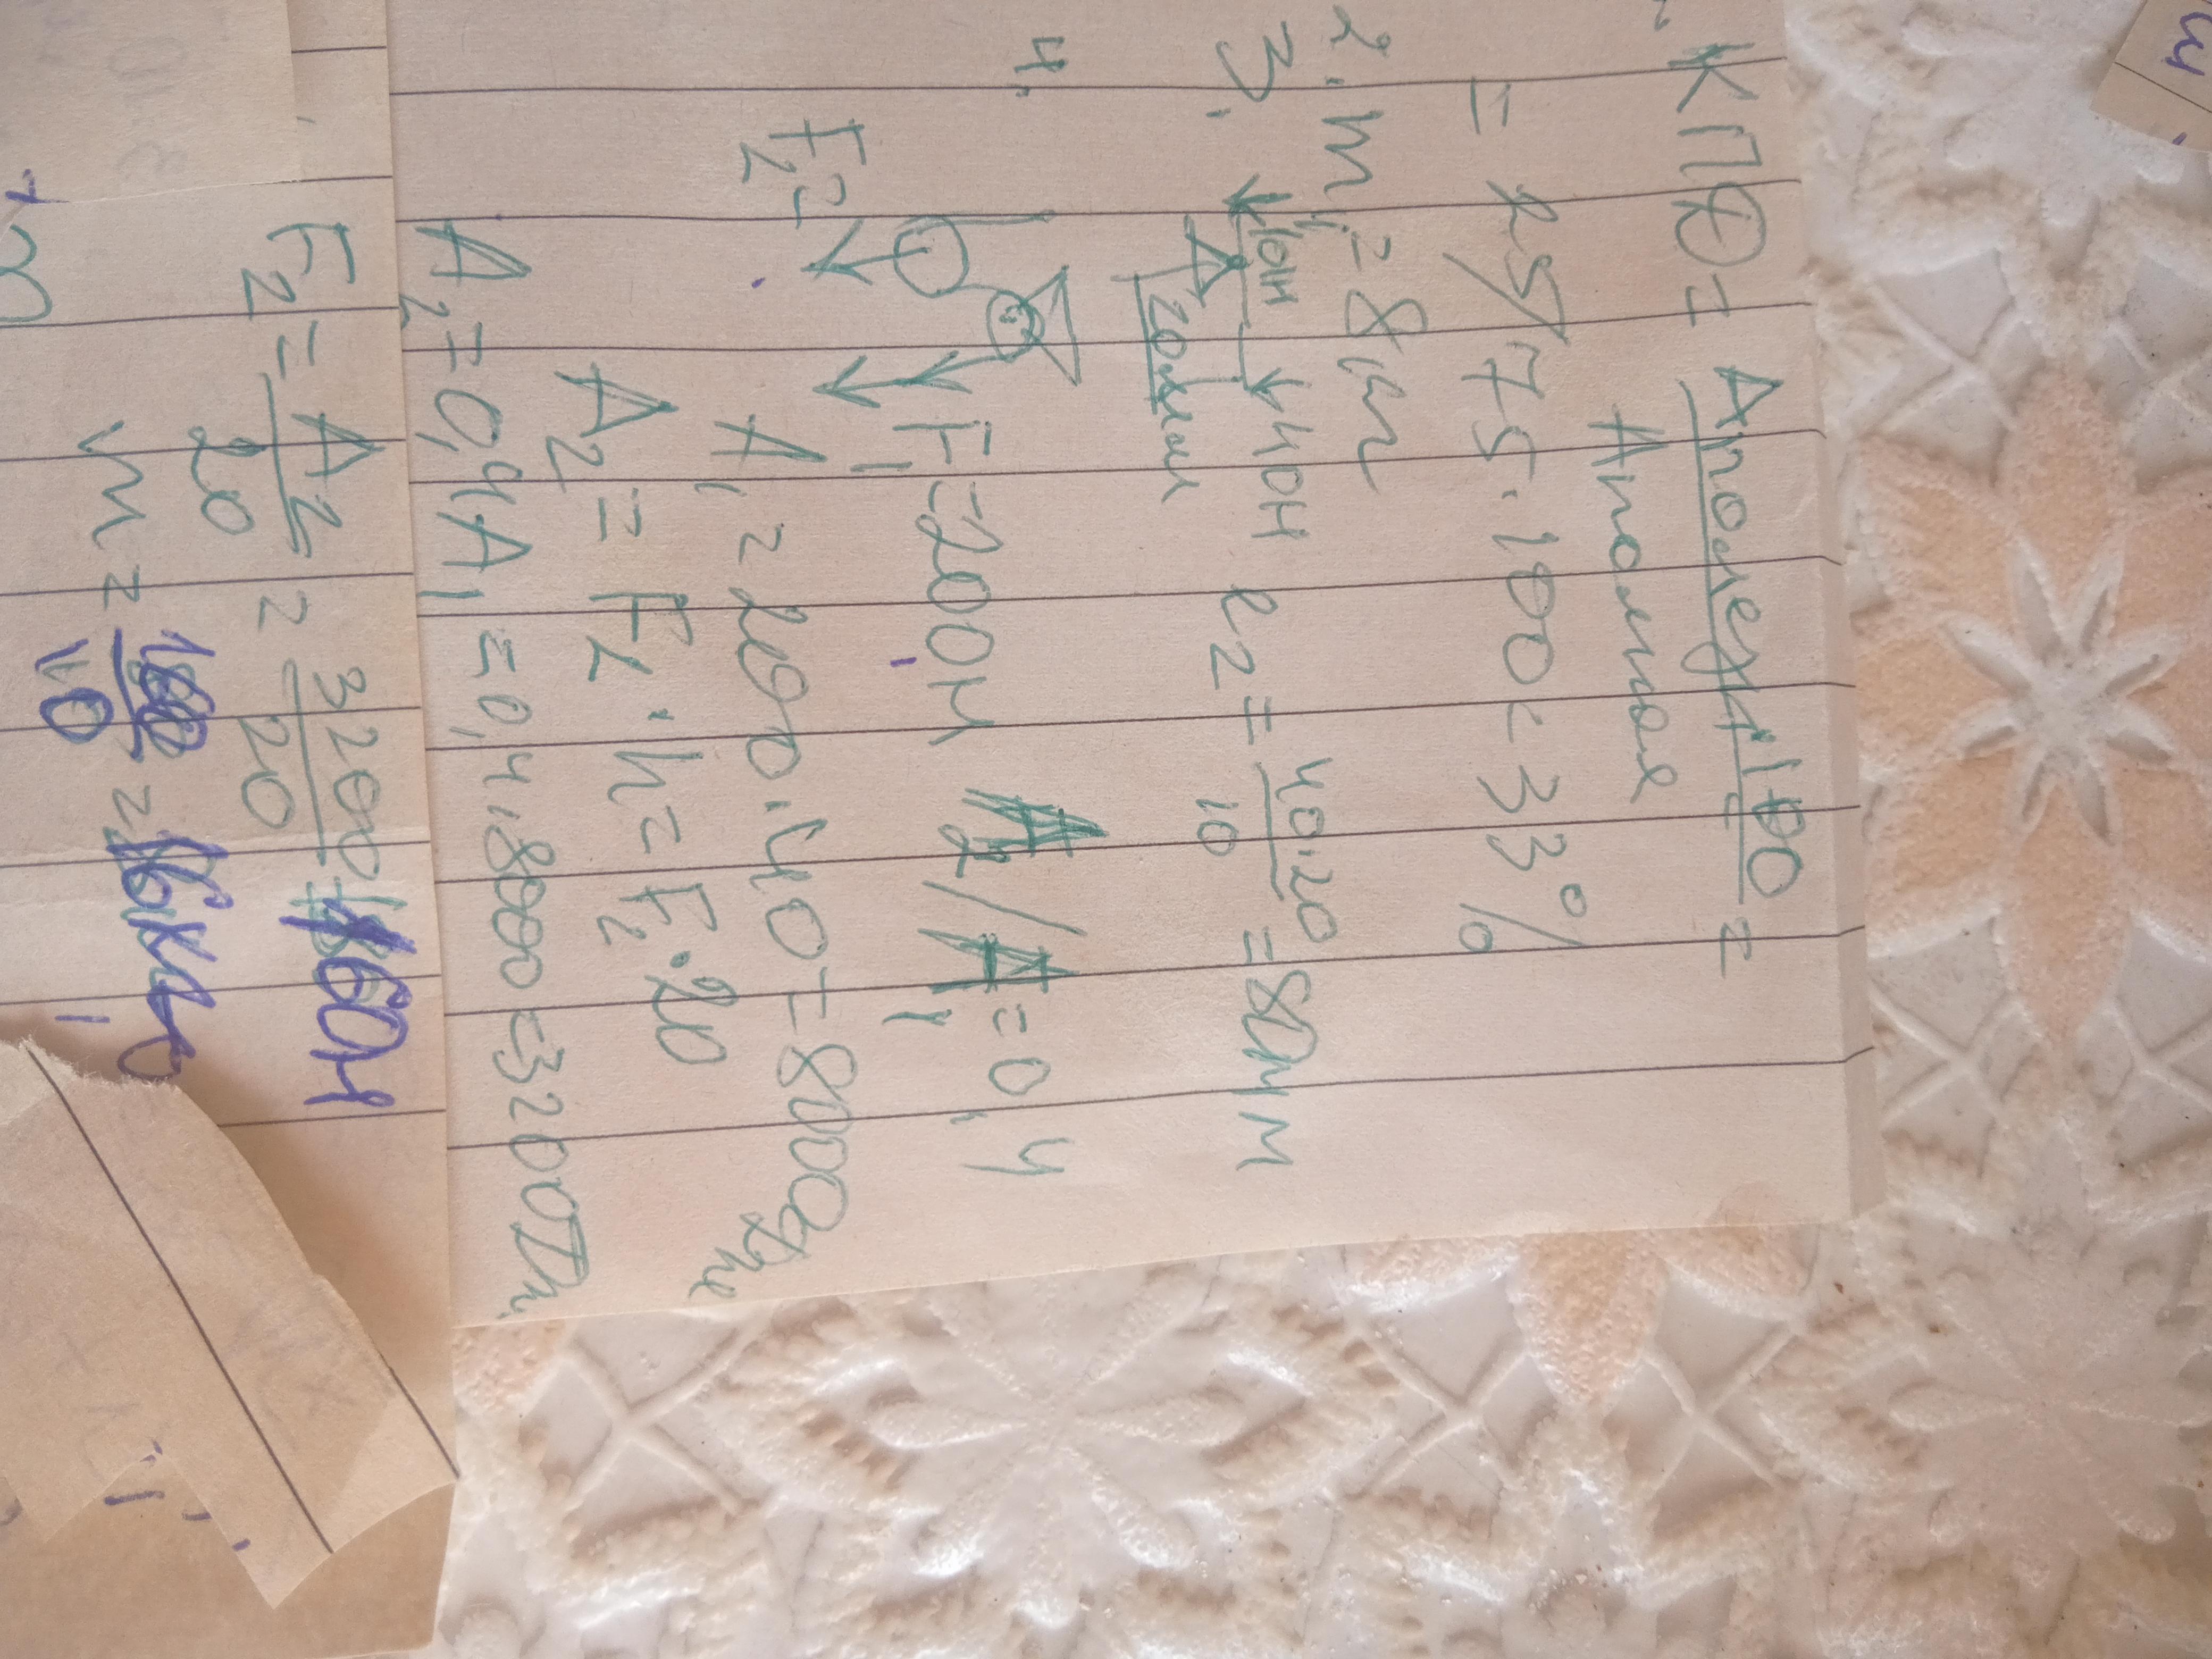 КПД = Aполезн·100 =
Aполная
= 25/75·100 = 33%
2. m₁ = 8 кг
3. 10Н 40Н l₂ = 40·20 = 80 мм
10
20мм
4. F₁ = 200Н A₂/A₁ = 0,4
F₂ =
A₁ = 200·40 = 8000 Дж
A₂ = F₂·h = F₂·20
A₂ = 0,4A₁ = 0,4·8000 = 3200 Дж
F₂ = A₂ = 3200 = 160Н
20 20
m = 160 = 16 кг
10